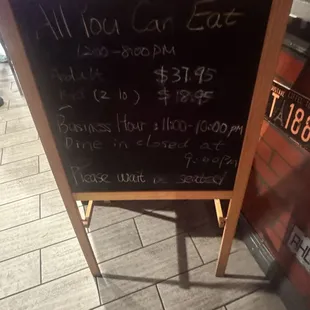 All You Can Eat
12:00-8:00PM
Adult $37.95
(2 10) $18.95
Business Hour : 11:00-10:00PM
Dine in closed at
9:40PM
Please wait seated
188